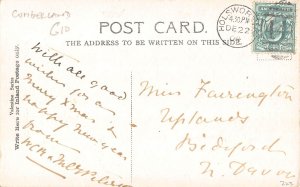 Cumberland
G10
POST CARD.
THE ADDRESS TO BE WRITTEN ON THIS SIDE
Valentine Series
Write Here for Inland Postage only.
With all good
wishes for a
merry Xmas &
happy new year
from
HOLSWORTHY
DE 22
Miss Farrington
Uplands
Bideford
N. Devon